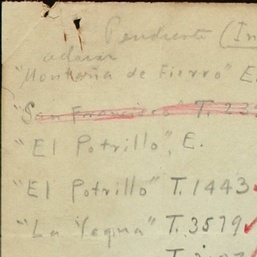 Pendiente (In
aclarar
"Montaña de Fierro" E.
"San Francisco" T. 23
"El Potrillo", E.
"El Potrillo" T. 1443
"La Yegua" T. 3579